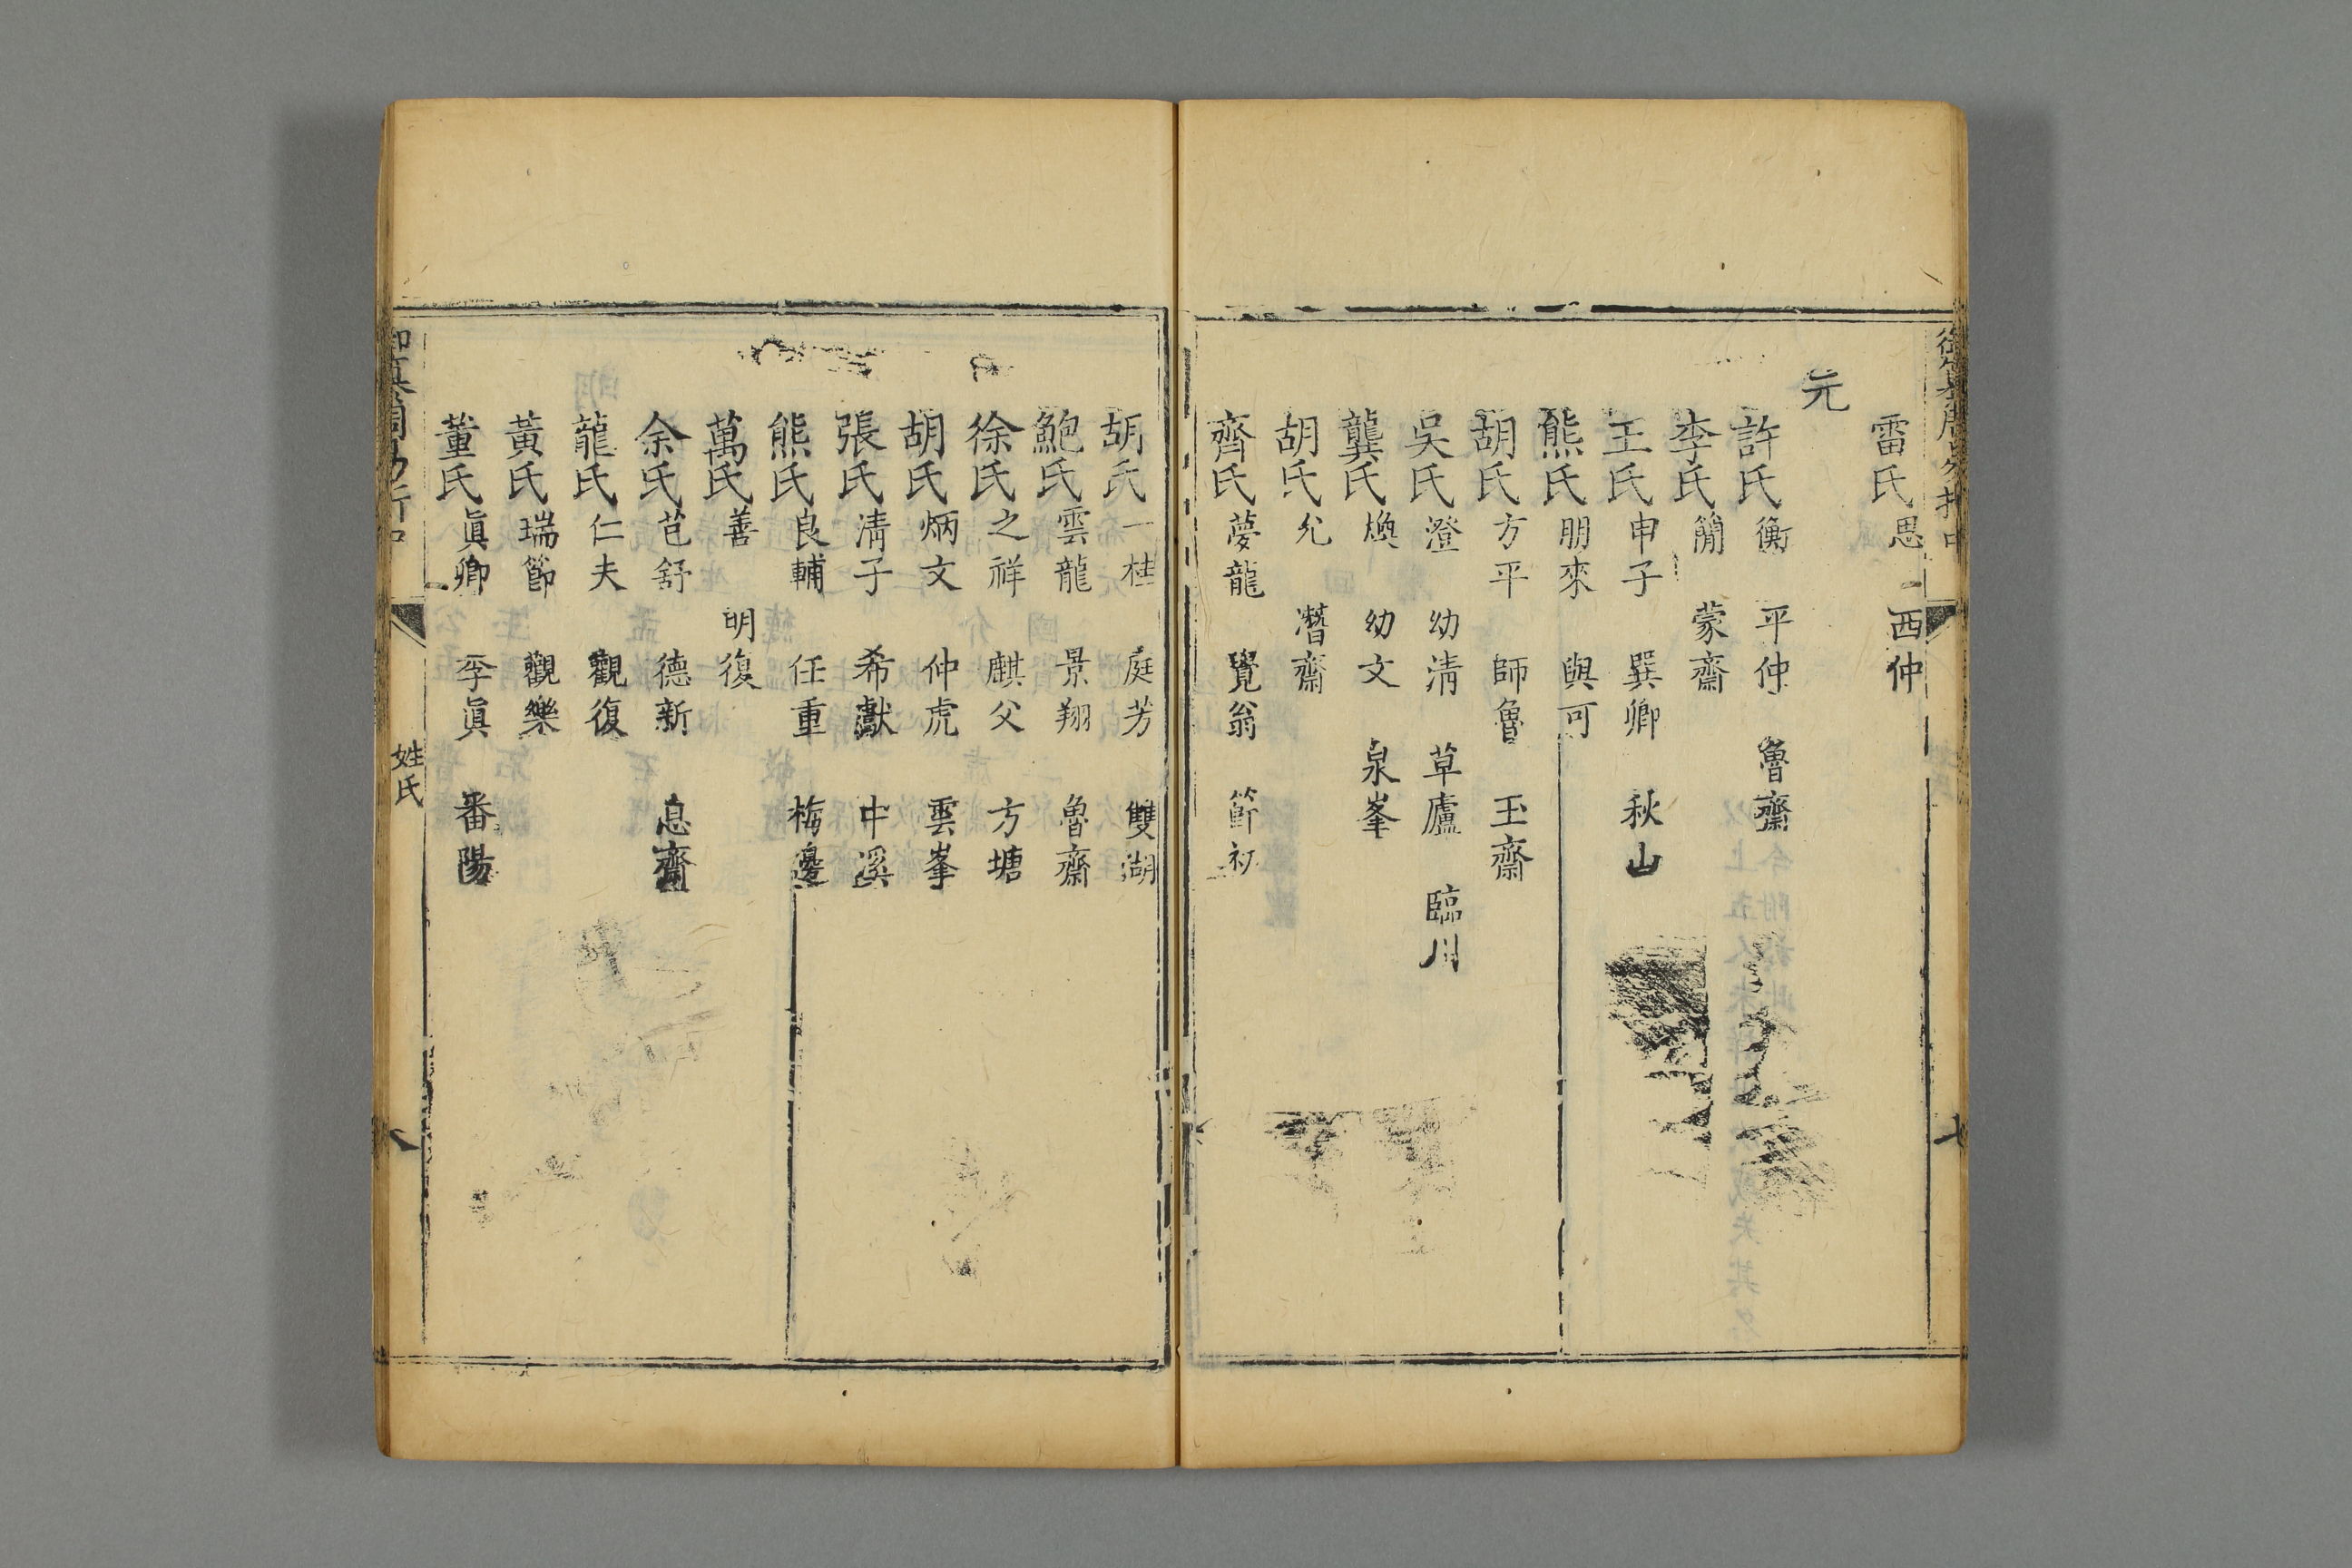 雷氏思 西仲
元
許氏衡 平仲 魯齋
李氏簡 蒙齋
王氏申子 巽卿 秋山
熊氏朋來 與可
胡氏方平 師魯 玉齋
吳氏澄 幼淸 草廬 臨川
龔氏煥 幼文 泉峯
胡氏允 潛齋
齊氏夢龍 覺翁 節初
胡氏一桂 庭芳 雙湖
鮑氏雲龍 景翔 魯齋
徐氏之祥 麒父 方塘
胡氏炳文 仲虎 雲峯
張氏淸子 希獻 中溪
熊氏良輔 任重 梅邊
萬氏善 明復
余氏芑舒 德新 息齋
龍氏仁夫 觀復
黃氏瑞節 觀樂
董氏眞卿 季眞 番陽
姓氏